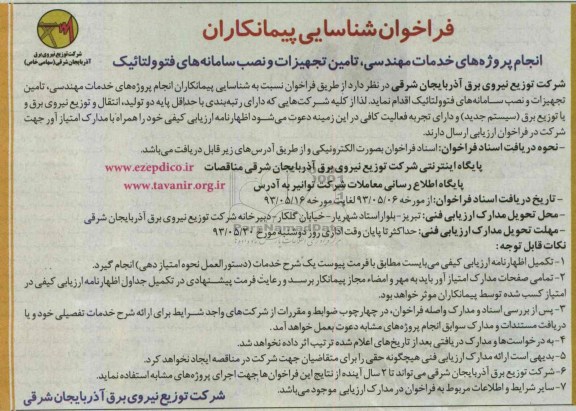 فراخوان شناسایی پیمانکاران
شرکت توزیع نیروی برق
آذربایجان شرقی (سهامی خاص)
انجام پروژه‌های خدمات مهندسی، تامین تجهیزات و نصب سامانه‌های فتوولتائیک
شرکت توزیع نیروی برق آذربایجان شرقی در نظر دارد از طریق فراخوان نسبت به شناسایی پیمانکاران انجام پروژه‌های خدمات مهندسی، تامین
تجهیزات و نصب سامانه‌های فتوولتائیک اقدام نماید. لذا از کلیه شرکت‌هایی که دارای رتبه‌بندی با حداقل پایه دو تولید، انتقال و توزیع نیروی برق و
یا توزیع برق (سیستم جدید) و دارای تجربه فعالیت کافی در این زمینه دعوت می‌شود اظهارنامه ارزیابی کیفی خود را همراه با مدارک امتیاز آور جهت
شرکت در فراخوان ارزیابی ارسال دارند.
- نحوه دریافت اسناد فراخوان: اسناد فراخوان بصورت الکترونیکی و از طریق آدرس‌های زیر قابل دریافت می‌باشد.
پایگاه اینترنتی شرکت توزیع نیروی برق آذربایجان شرقی مناقصات www.ezepdico.ir
پایگاه اطلاع رسانی معاملات شرکت توانیر به آدرس www.tavanir.org.ir
- تاریخ دریافت اسناد فراخوان: از مورخه ۹۳/۰۵/۰۶ لغایت مورخه ۹۳/۰۵/۱۶
- محل تحویل مدارک ارزیابی فنی: تبریز- بلوار استاد شهریار- خیابان گلکار- دبیرخانه شرکت توزیع نیروی برق آذربایجان شرقی
- مهلت تحویل مدارک ارزیابی فنی: حداکثر تا پایان وقت اداری روز دوشنبه مورخ ۹۳/۰۵/۲۰
نکات قابل توجه:
۱- تکمیل اظهارنامه ارزیابی کیفی می‌بایست مطابق با فرمت پیوست یک شرح خدمات (دستورالعمل نحوه امتیاز دهی) انجام گیرد.
۲- تمامی صفحات مدارک امتیاز آور باید به مهر و امضاء مجاز پیمانکار برسد و رعایت فرمت پیشنهادی در تکمیل جداول اظهارنامه ارزیابی کیفی در
امتیاز کسب شده توسط پیمانکاران موثر خواهد بود.
۳- پس از بررسی اسناد و مدارک واصله فراخوان، در چهارچوب ضوابط و مقررات از شرکت‌های واجد شرایط برای ارائه شرح خدمات تفصیلی خود و یا
دریافت مستندات و مدارک سوابق انجام پروژه‌های مشابه دعوت بعمل خواهد آمد.
۴- به درخواست‌ها و مدارک دریافتی بعد از تاریخ‌های اعلام شده ترتیب اثر داده نخواهد شد.
۵- بدیهی است ارائه مدارک ارزیابی فنی هیچگونه حقی را برای متقاضیان جهت شرکت در مناقصه ایجاد نخواهد کرد.
۶- شرکت توزیع نیروی برق آذربایجان شرقی می‌تواند تا ۲ سال آینده از نتایج این فراخوان‌ها جهت اجرای پروژه‌های مشابه استفاده نماید.
۷- سایر شرایط و اطلاعات مربوط به فراخوان در مدارک ارزیابی موجود می‌باشد.
شرکت توزیع نیروی برق آذربایجان شرقی